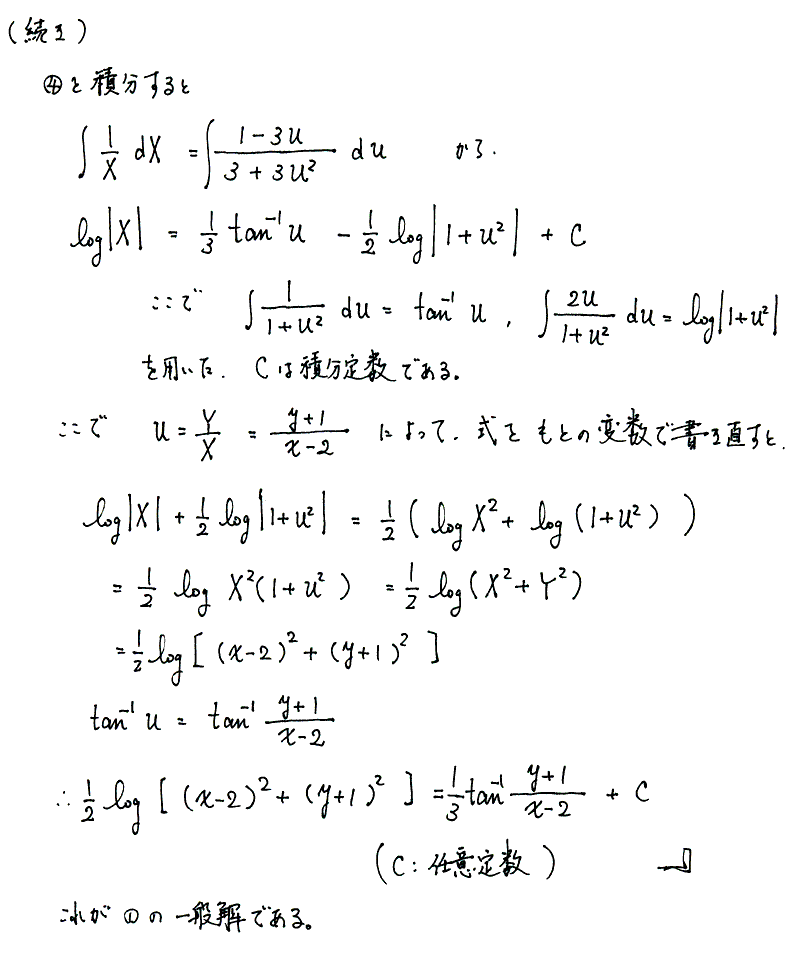 (続き)
④を積分すると
∫ 1/X dX = ∫ (1-3u)/(3+3u²) du から.
log|X| = 1/3 tan⁻¹u - 1/2 log|1+u²| + C
ここで ∫ 1/(1+u²) du = tan⁻¹ u , ∫ 2u/(1+u²) du = log|1+u²|
を用いた. Cは積分定数である。
ここで u = Y/X = (y+1)/(x-2) によって, 式をもとの変数で書き直すと.
log|X| + 1/2 log|1+u²| = 1/2 ( log X² + log (1+u²) )
= 1/2 log X²(1+u²) = 1/2 log(X²+Y²)
= 1/2 log [ (x-2)² + (y+1)² ]
tan⁻¹ u = tan⁻¹ (y+1)/(x-2)
∴ 1/2 log [ (x-2)² + (y+1)² ] = 1/3 tan⁻¹ (y+1)/(x-2) + C
(C: 任意定数)
これが①の一般解である。